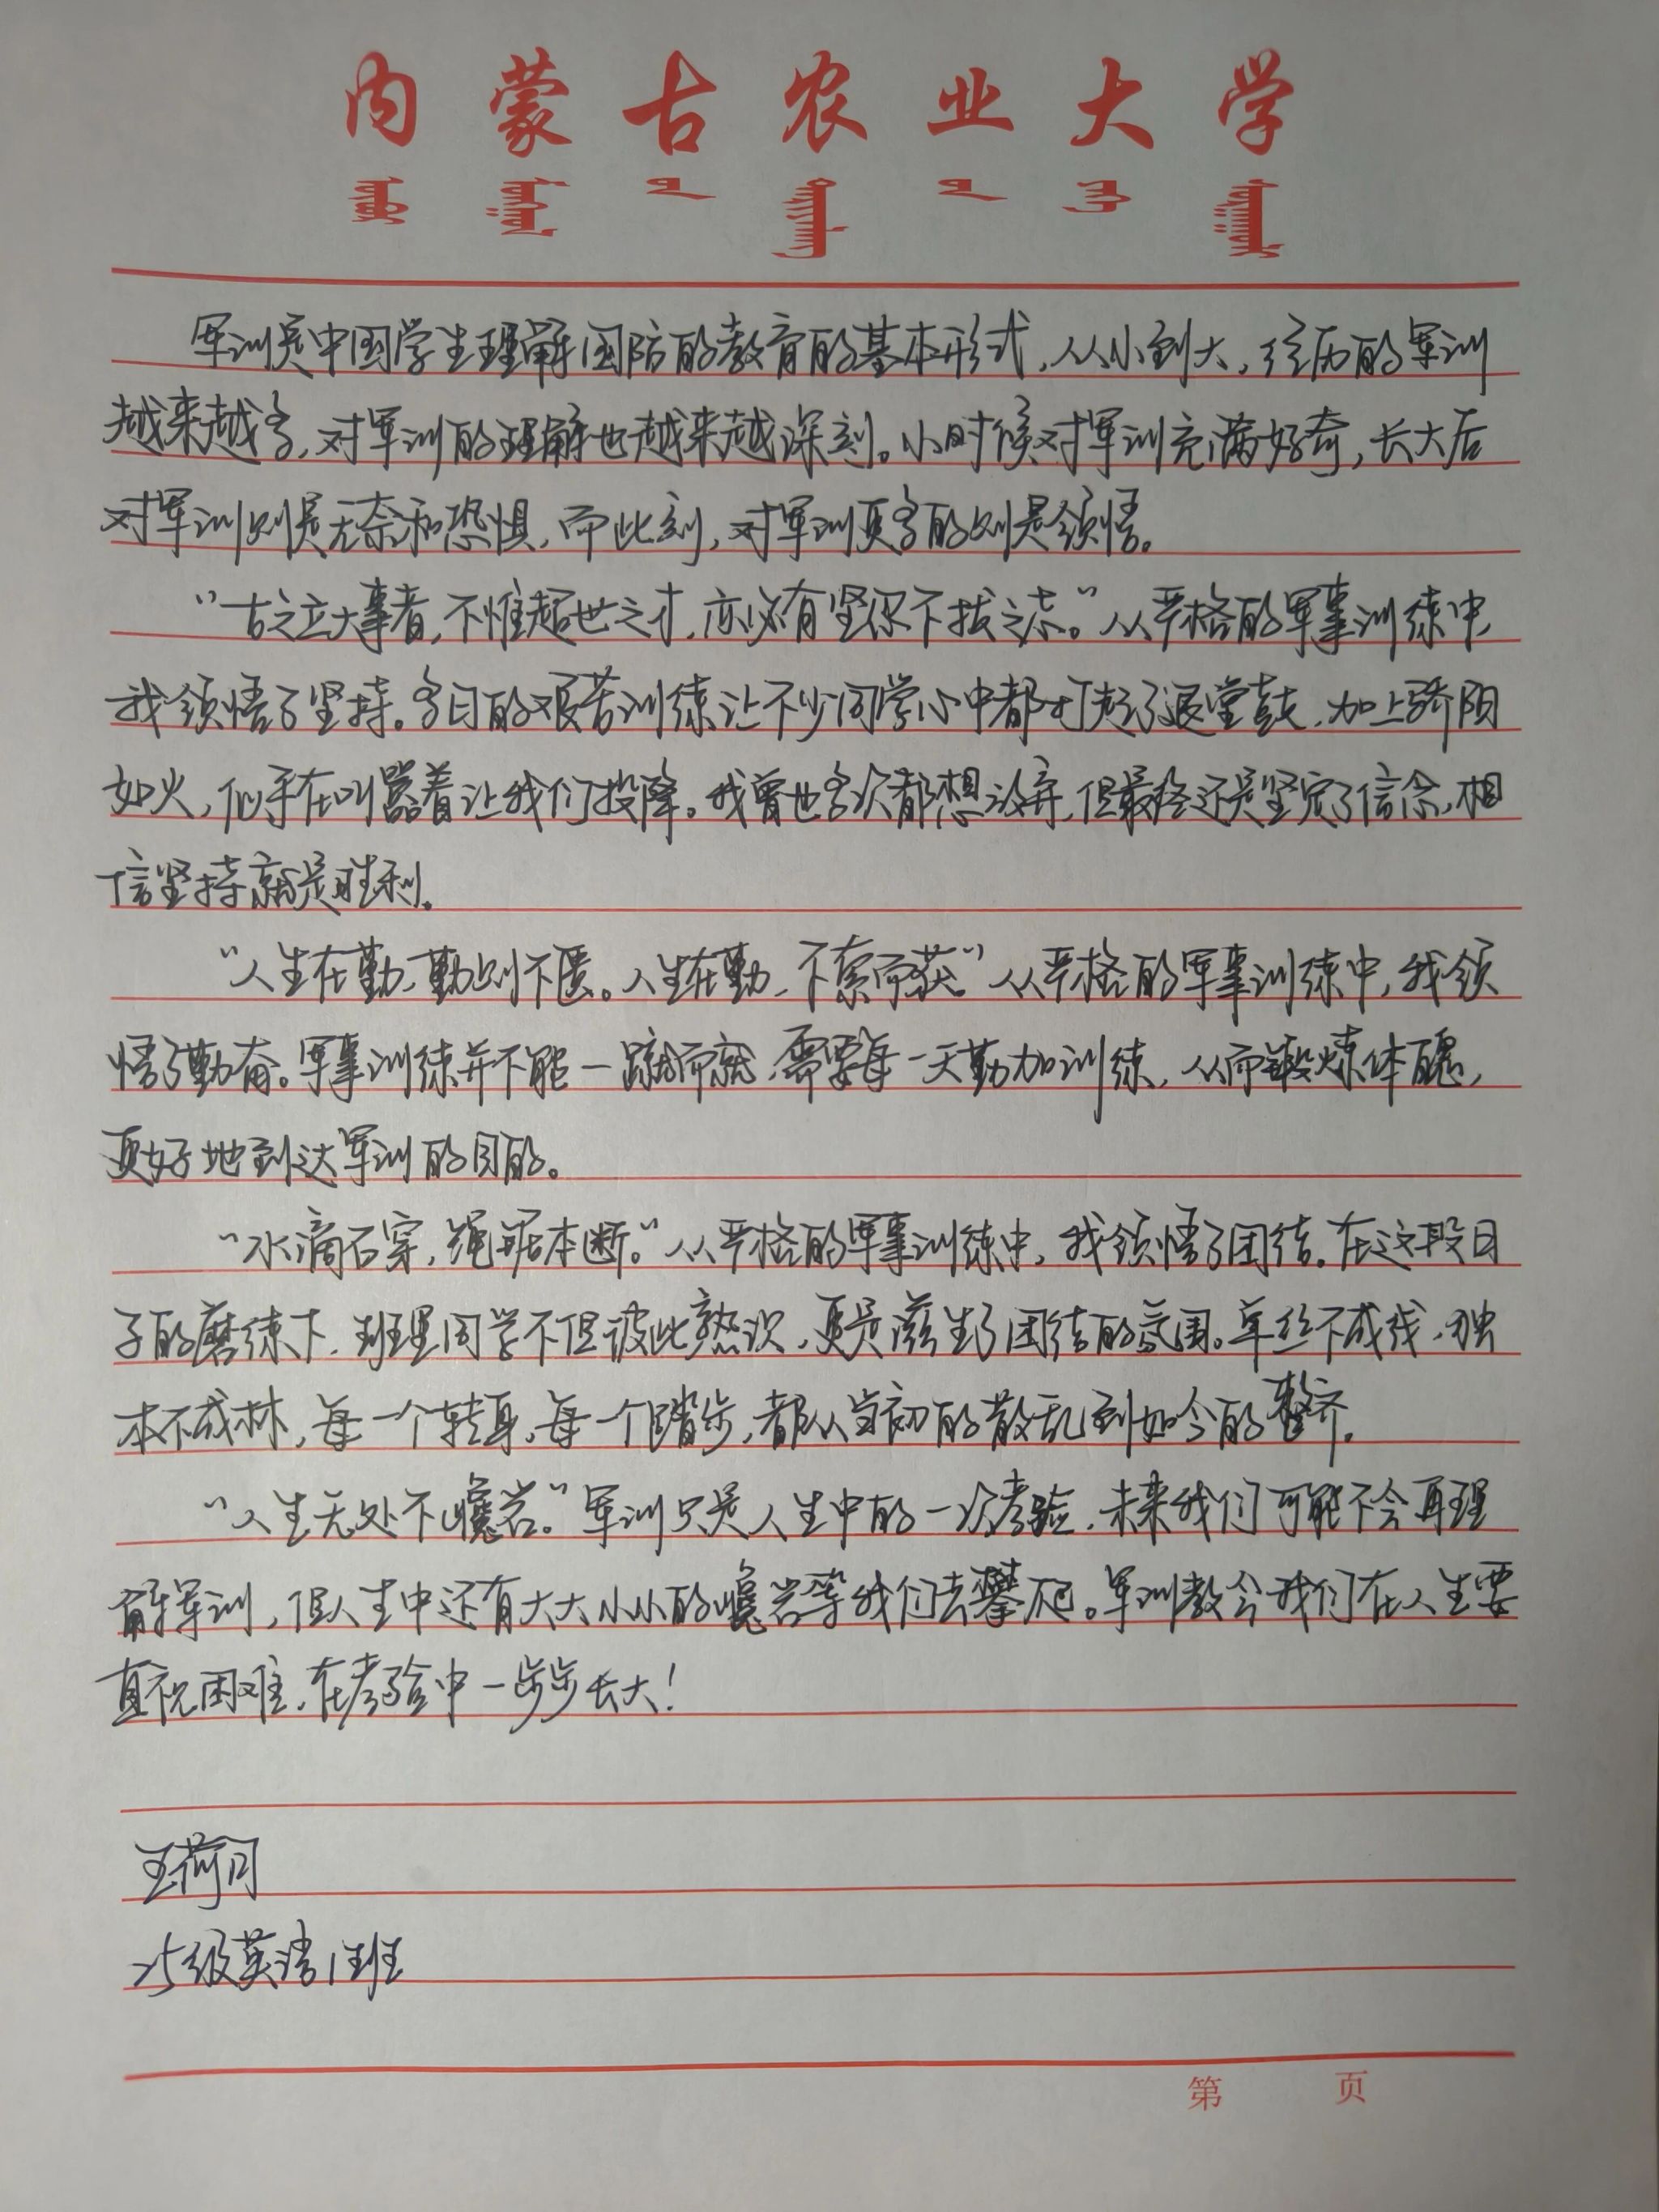 内蒙古农业大学
军训是中国学生理解国防的教育的基本形式，从小到大，经历的军训
越来越多，对军训的理解也越来越深刻。小时候对军训充满好奇，长大后
对军训则是无奈和恐惧，而此刻，对军训更多的则是领悟。
“古之立大事者，不惟超世之才，亦必有坚忍不拔之志。”从严格的军事训练中，
我领悟了坚持。多日的艰苦训练让不少同学心中都打起了退堂鼓，加上骄阳
如火，似乎在叫嚣着让我们投降。我曾也多次都想放弃，但最终还是坚定了信念，相
信坚持就是胜利。
“人生在勤，勤则不匮。人生在勤，不索何获。”从严格的军事训练中，我领
悟了勤奋。军事训练并不能一蹴而就，需要每一天勤加训练，从而锻炼体魄，
更好地到达军训的目的。
“水滴石穿，绳锯木断。”从严格的军事训练中，我领悟了团结。在这段日
子的磨练下，班里同学不但彼此熟识，更是滋生了团结的氛围。单丝不成线，独
木不成林，每一个转身，每一个踏步，都从当初的散乱到如今的整齐。
“人生无处不巉岩。”军训只是人生中的一次考验，未来我们可能不会再理
解军训，但人生中还有大大小小的巉岩等我们去攀爬。军训教会我们在人生要
直视困难，在考验中一步步长大！
王荷月
25级英语1班
第 页